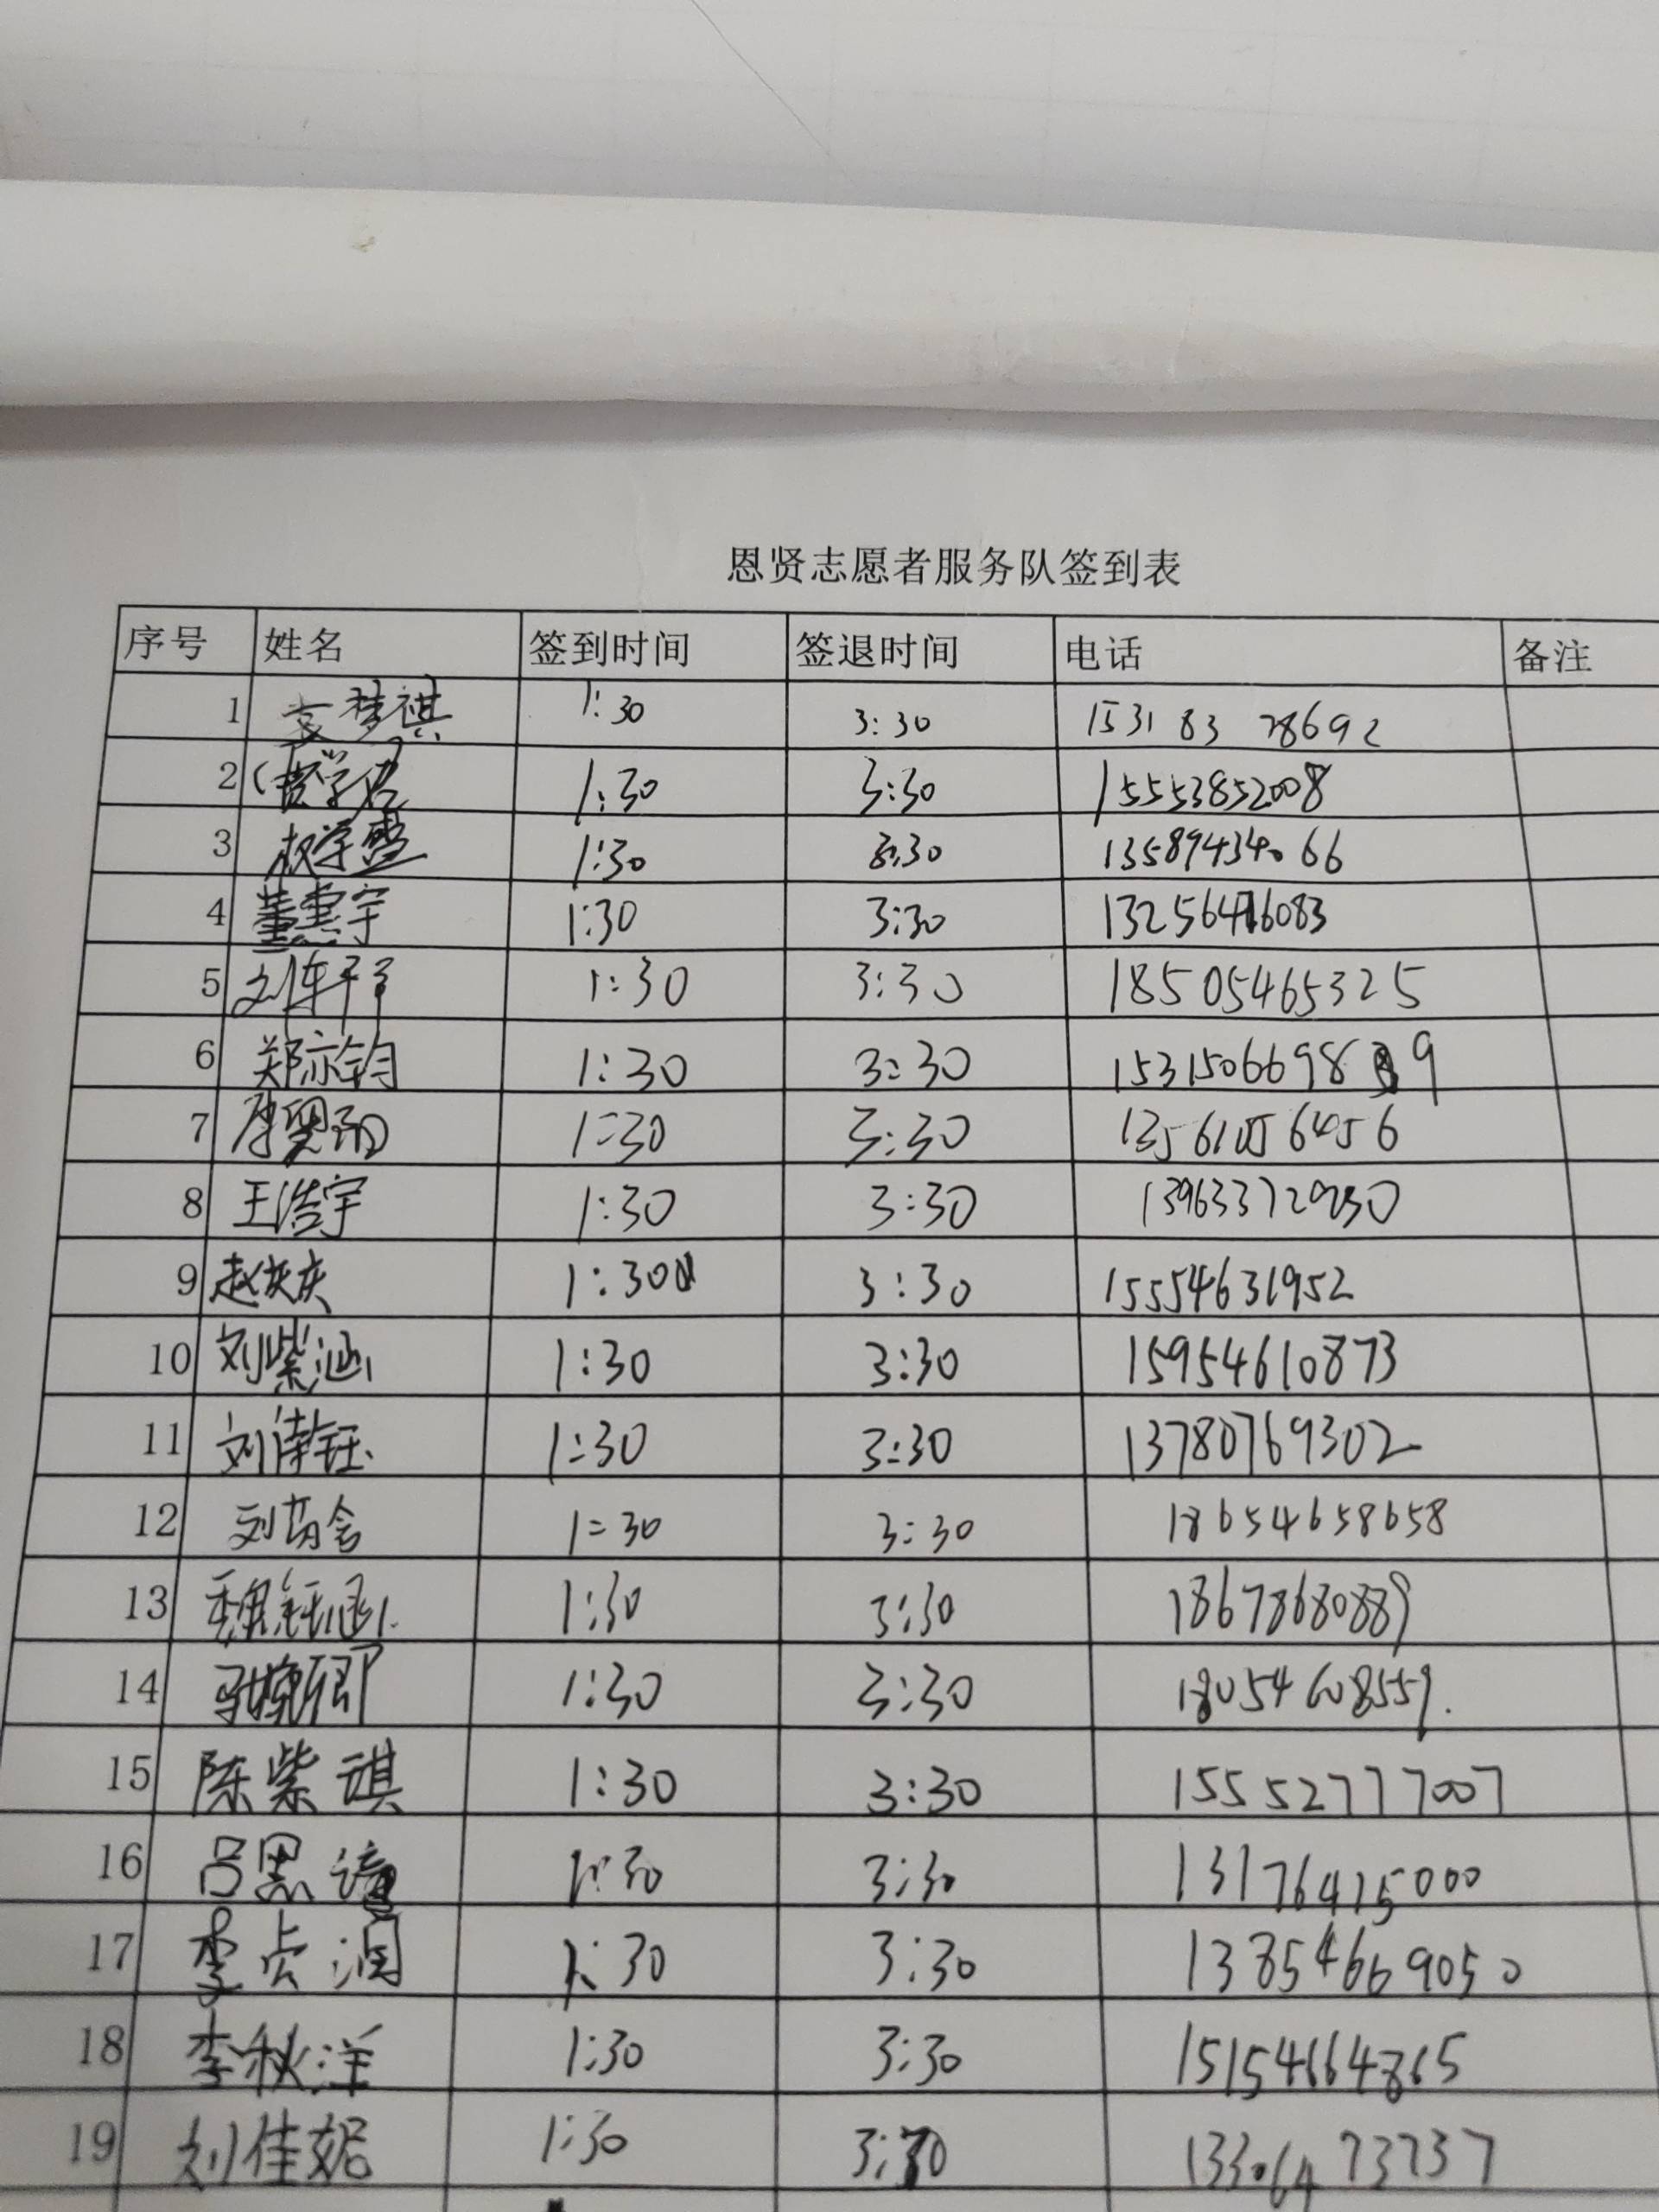 恩贤志愿者服务队签到表
序号 姓名 签到时间 签退时间 电话 备注
1 梦祺 1:30 3:30 15318328692
2 1:30 3:30 15553852008
3 1:30 3:30 13589434066
4 董惠宇 1:30 3:30 13256476083
5 刘轩 1:30 3:30 18505465325
6 郑亦钧 1:30 3:30 15315066989
7 1:30 3:30
8 王浩宇 1:30 3:30
9 赵 1:30 3:30 15554631952
10 刘紫涵 1:30 3:30 15954610873
11 刘 钰 1:30 3:30 13780769302
12 刘 1:30 3:30 18654658658
13 魏钰涵 1:30 3:30 18678680889
14 卿 1:30 3:30 18054608559.
15 陈紫祺 1:30 3:30 15552777007
16 吕思 1:30 3:30 13176415000
17 李 润 1:30 3:30 13854669050
18 李秋洋 1:30 3:30 15154664865
19 刘佳妮 1:30 3:30 13306473737